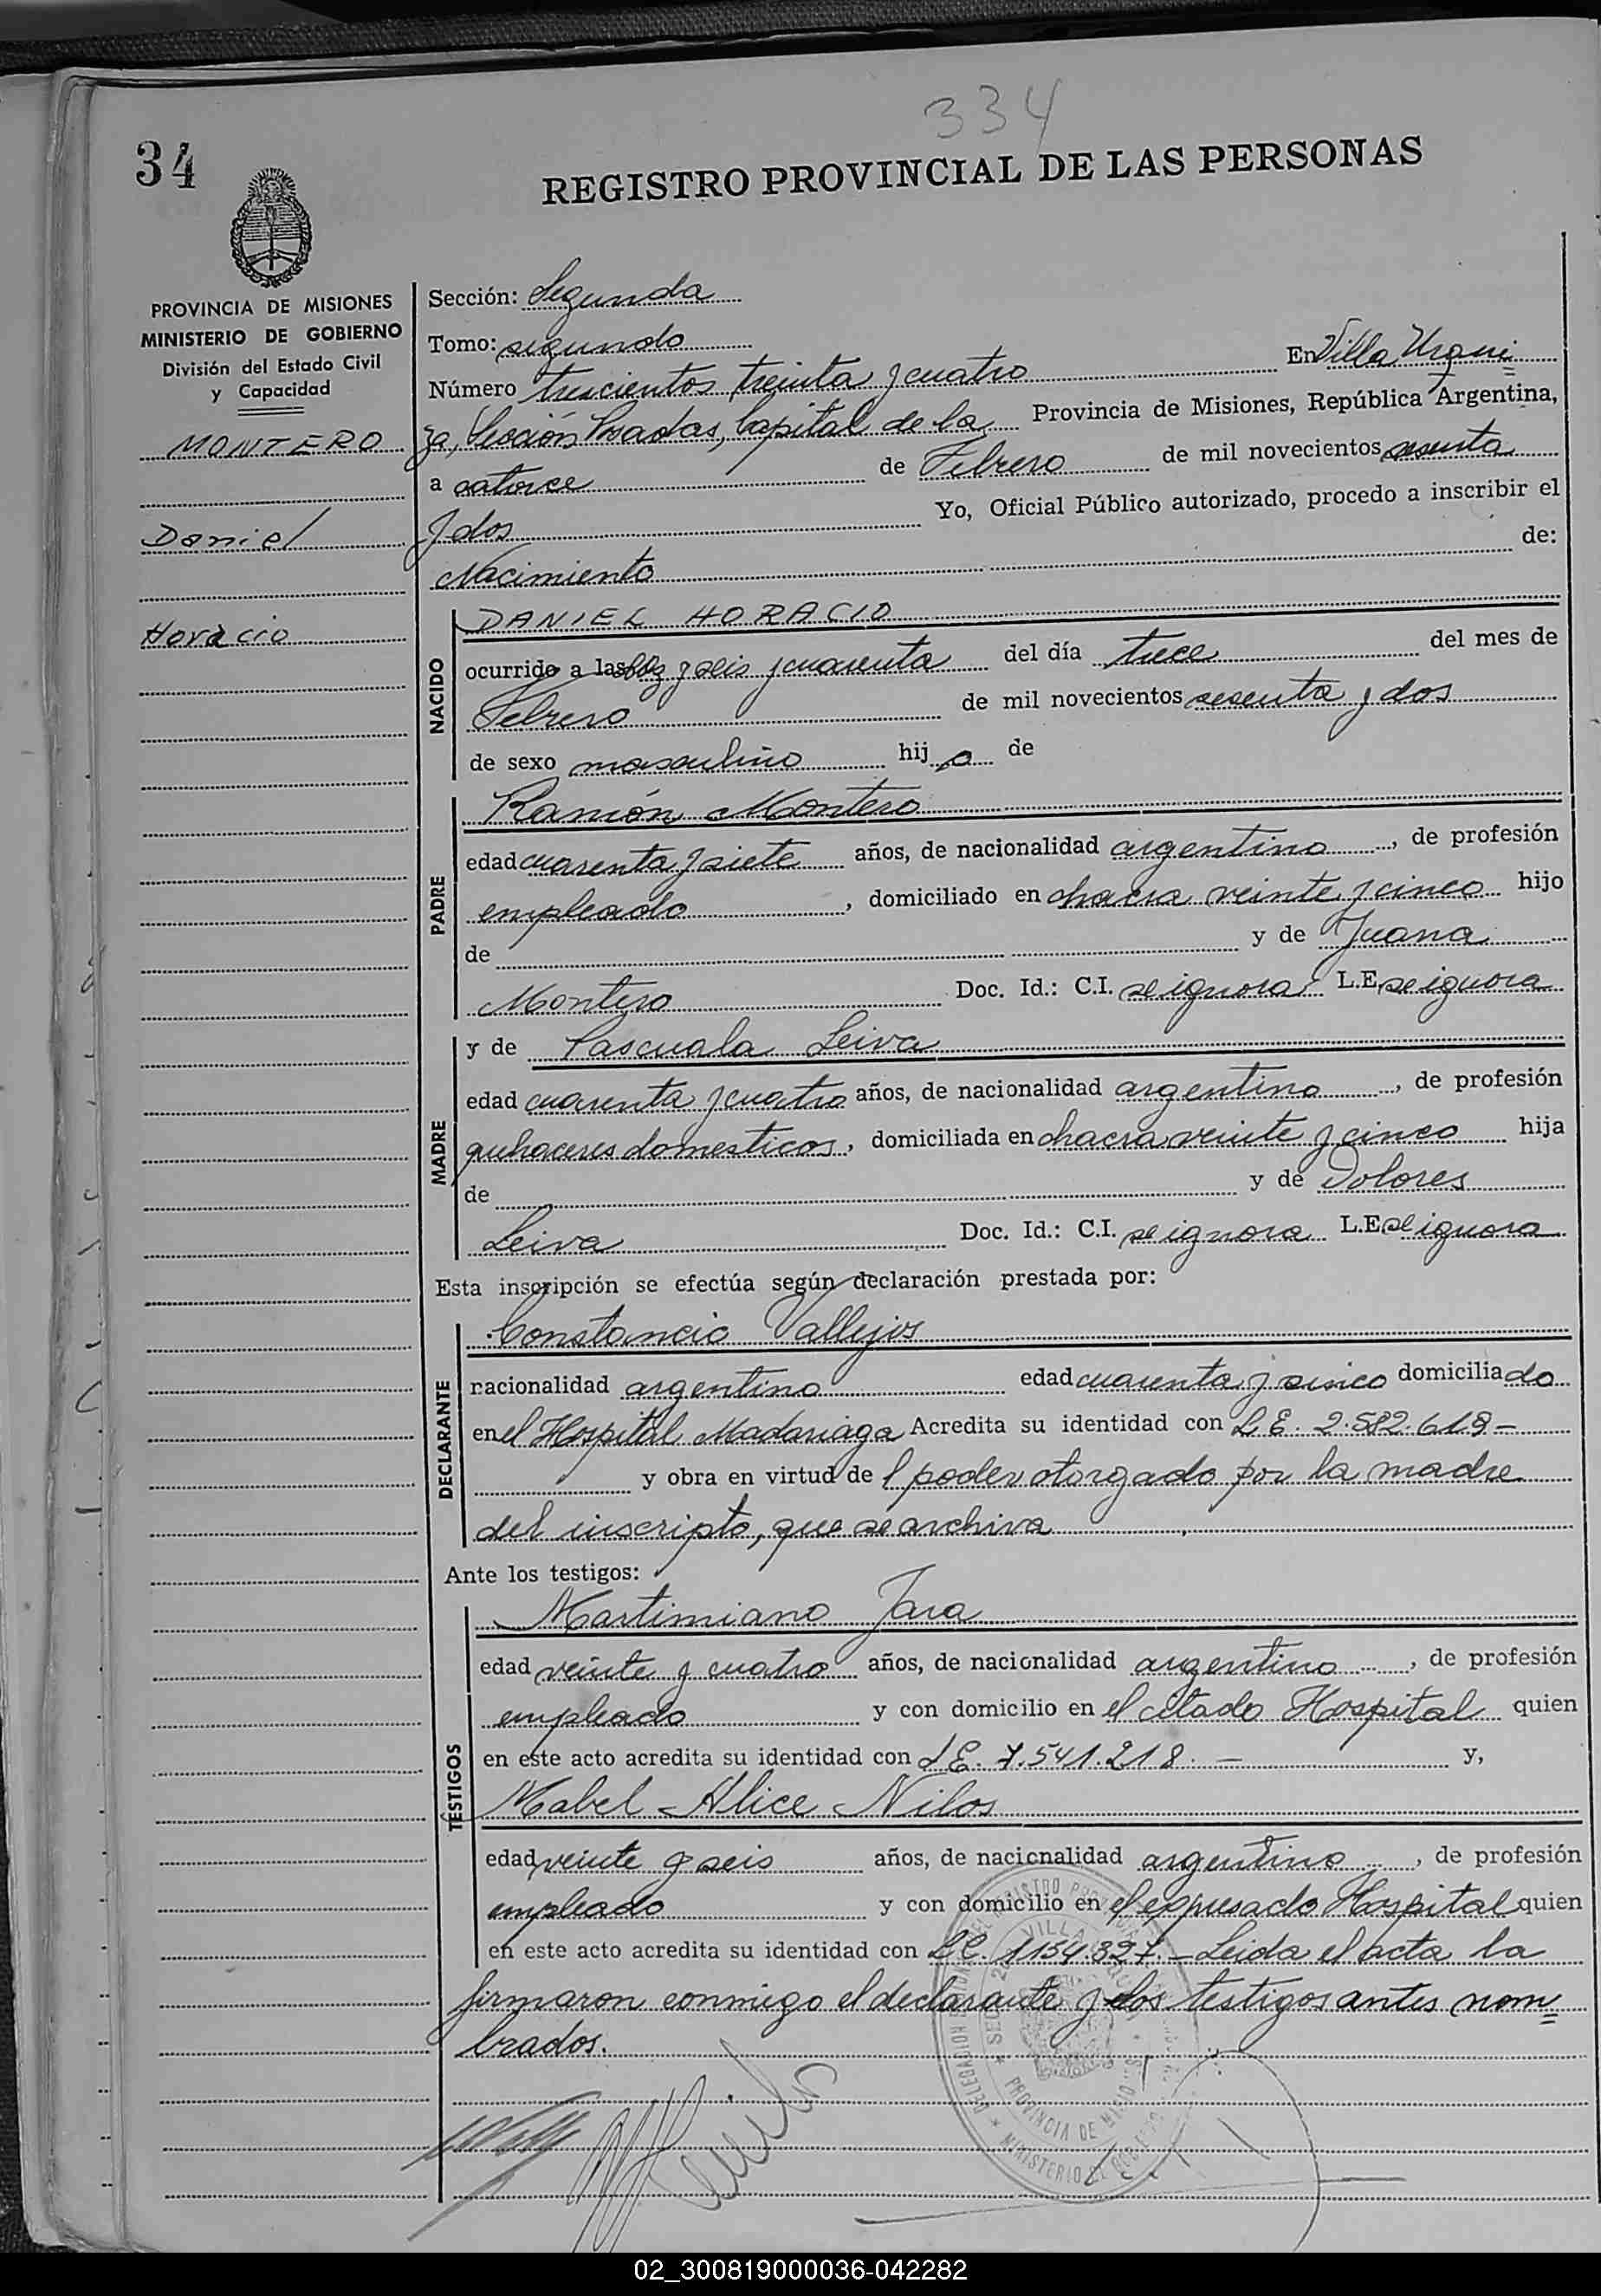 334
34
REGISTRO PROVINCIAL DE LAS PERSONAS
PROVINCIA DE MISIONES
MINISTERIO DE GOBIERNO
División del Estado Civil
y Capacidad
MONTERO
Daniel
Horacio
Sección: Segunda
Tomo: segundo
Número trescientos treinta y cuatro En Villa Urqui=
za, Sección Posadas, Capital de la Provincia de Misiones, República Argentina,
a catorce de Febrero de mil novecientos sesenta
y dos Yo, Oficial Público autorizado, procedo a inscribir el
Nacimiento de:
NACIDO
DANIEL HORACIO
ocurrido a las diez y seis y cuarenta del día trece del mes de
Febrero de mil novecientos sesenta y dos
de sexo masculino hijo de
PADRE
Ramón Montero
edad cuarenta y siete años, de nacionalidad argentino, de profesión
empleado, domiciliado en chacra veinte y cinco hijo
de y de Juana
Montero Doc. Id.: C.I. se ignora L.E. se ignora
MADRE
y de Pascuala Leiva
edad cuarenta y cuatro años, de nacionalidad argentina, de profesión
quehaceres domesticos, domiciliada en chacra veinte y cinco hija
de y de Dolores
Leiva Doc. Id.: C.I. se ignora L.E. se ignora
Esta inscripción se efectúa según declaración prestada por:
DECLARANTE
Constancio Vallejos
nacionalidad argentino edad cuarenta y cinco domiciliado
en el Hospital Madariaga Acredita su identidad con L.E. 2.582.619-
y obra en virtud del poder otorgado por la madre
del inscripto, que se archiva
Ante los testigos:
TESTIGOS
Martimiano Jara
edad veinte y cuatro años, de nacionalidad argentino, de profesión
empleado y con domicilio en el citado Hospital quien
en este acto acredita su identidad con L.E. 7.541.218.- y,
Mabel Alice Nilos
edad veinte y seis años, de nacionalidad argentino, de profesión
empleado y con domicilio en el expresado Hospital quien
en este acto acredita su identidad con L.C. 1154.327.- Leida el acta la
firmaron conmigo el declarante y los testigos antes nom=
brados.
PROVINCIA DE MISIONES
02_300819000036-042282